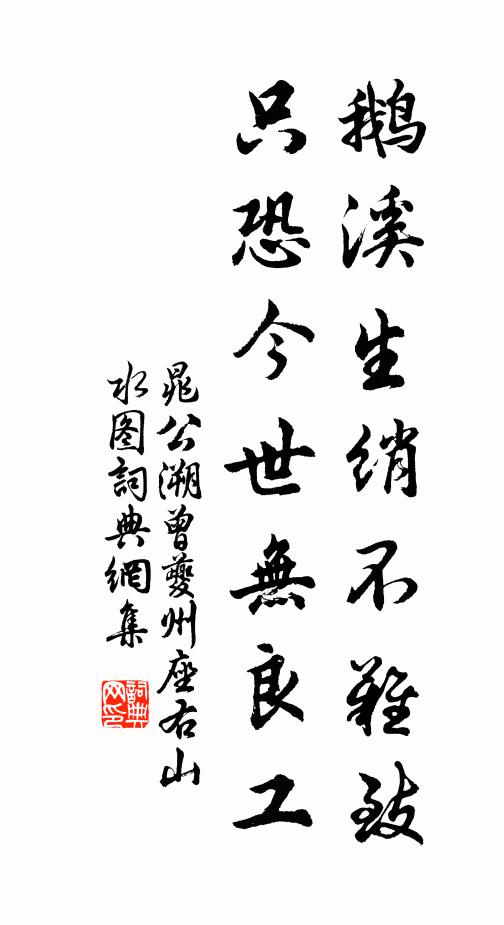 鵝溪生綃不難致
只恐今世無良工
晁公溯曾夔州座右山
水图詞典網集
詞典
网印